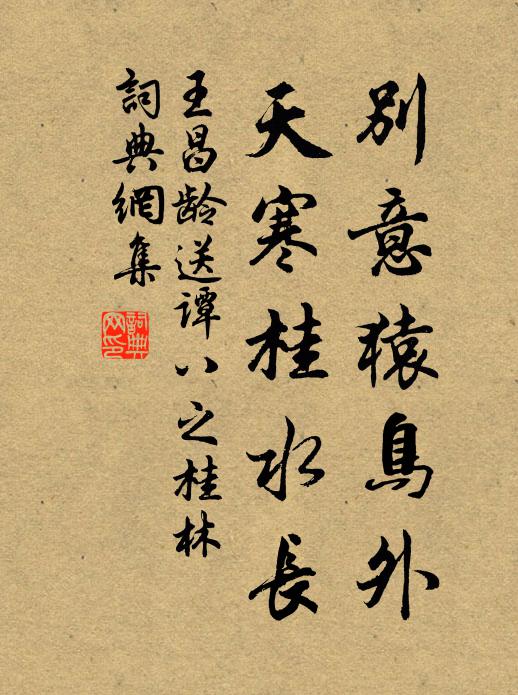 別意猿鳥外
天寒桂水長
王昌齡送譚八之桂林
詞典網集
詞典
网印